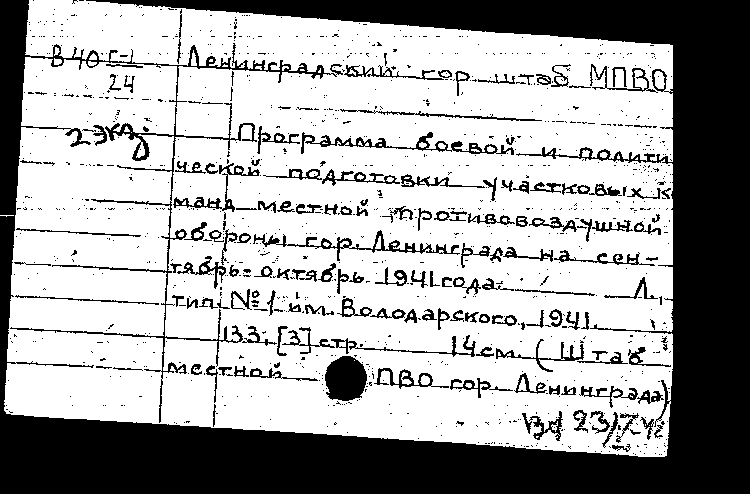 В 40 Г-1 Ленинградский гор штаб МПВО
24
2 экз. Программа боевой и полити
ческой подготовки участковых к
манд местной противовоздушной
обороны гор. Ленинграда на сен-
тябрь-октябрь 1941 года. Л.,
тип. № 1 им. Володарского, 1941.
133, [3] стр. 14 см. (Штаб
местной ПВО гор. Ленинграда)
23/